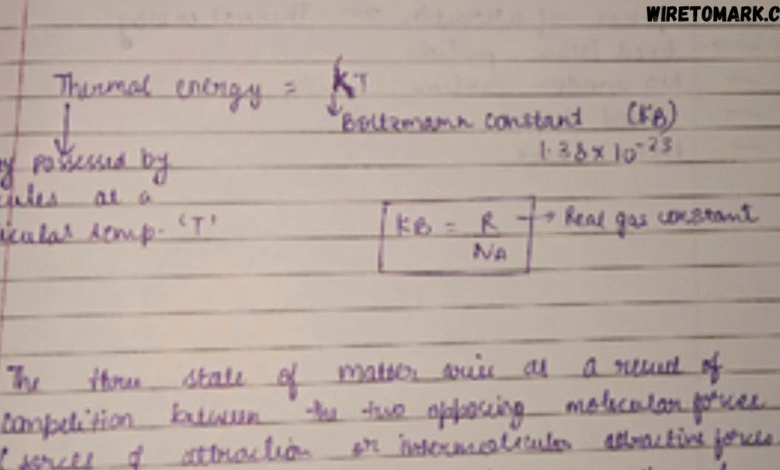 WIRETOMARK.C
Thermal energy = KT
Boltzmann constant (KB)
y possessed by
1.38 x 10-23
cules at a
icular temp. 'T'
KB = R → Real gas constant
NA
The three state of matter arise as a result of
competition between the two opposing molecular forces
forces of attraction or intermolecular attractive forces